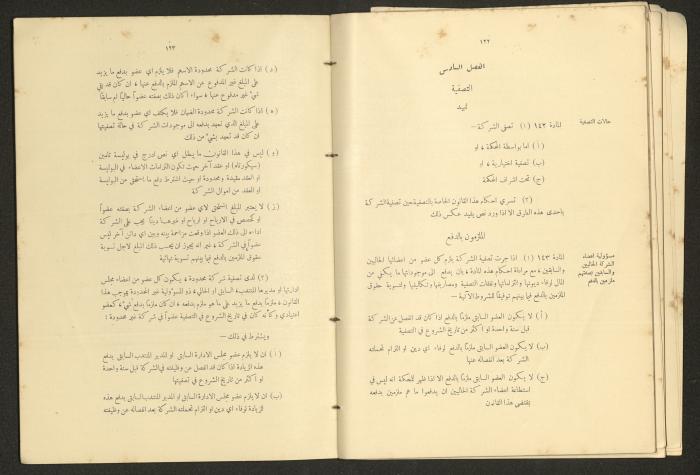 ١٢٢
الفصل السادس
التصفية
تمهيد
حالات التصفية
المادة ١٤٢ (١) تصفى الشركة —
(أ) اما بواسطة المحكمة ، او
(ب) تصفية اختيارية ، او
(ج) تحت اشراف المحكمة
(٢) تسري احكام هذا القانون الخاصة بالتصفية حين تصفية الشركة
باحدى هذه الطرق الا اذا ورد نص يفيد عكس ذلك
الملزمون بالدفع
مسؤولية اعضاء
الشركة الحاليين
والسابقين بصفتهم
ملزمين بالدفع
المادة ١٤٣ (١) اذا جرت تصفية الشركة يلزم كل عضو من اعضائها الحاليين
والسابقين ، مع مراعاة احكام هذه المادة ، بان يدفع الى موجوداتها ما يكفي من
المال لوفاء ديونها والتزاماتها ونفقات التصفية ومصاريفها وتكاليفها ولتسوية حقوق
الملزمين بالدفع فيما بينهم توفيقاً للشروط الآتية —
(أ) لا يكون العضو السابق ملزماً بالدفع اذا كان قد انفصل عن الشركة
قبل سنة واحدة او اكثر من تاريخ الشروع في التصفية
(ب) لا يكون العضو السابق ملزماً بالدفع لوفاء اي دين او التزام تحملته
الشركة بعد انفصاله عنها
(ج) لا يكون العضو السابق ملزماً بالدفع الا اذا ظهر للمحكمة انه ليس في
استطاعة اعضاء الشركة الحاليين ان يدفعوا ما هم ملزمين بدفعه
بمقتضى هذا القانون
١٢٣
(د) اذا كانت الشركة محدودة الاسهم فلا يلزم اي عضو بدفع ما يزيد
على المبلغ غير المدفوع عن الاسهم الملزم بالدفع عنها ، ان كان قد بقي
شيء غير مدفوع عنها ، سواء اكان ذلك بصفته عضواً حالياً ام سابقاً
(ه) اذا كانت الشركة محدودة الضمان فلا يكلف اي عضو بدفع ما يزيد
على المبلغ الذي تعهد بدفعه الى موجودات الشركة في حالة تصفيتها
ان كان قد تعهد بشيء من ذلك
(و) ليس في هذا القانون ما يبطل اي نص ادرج في بوليسة تأمين
(سيكورتاه) او عقد آخر حيث تكون التزامات الاعضاء في البوليسة
او العقد مقيدة ومحدودة او حيث اشترط دفع ما استحق من البوليسة
او العقد من اموال الشركة
(ز) لا يعتبر المبلغ المستحق لاي عضو من اعضاء الشركة بصفته عضواً
او كحصص في الارباح او ارباح او غيرها ديناً يجب على الشركة
اداءه الى ذلك العضو اذا وقعت مزاحمة بينه وبين اي دائن آخر ليس
عضواً في الشركة ، غير انه يجوز ان يحسب ذلك المبلغ لاجل تسوية
حقوق الملزمين بالدفع فيما بينهم تسوية نهائية
(٢) لدى تصفية شركة محدودة ، يكون كل عضو من اعضاء مجلس
ادارتها او مديرها المنتدب ، السابق او الحالي ، ذو المسؤولية غير المحدودة بموجب هذا
القانون ، ملزماً بدفع ما يزيد على ما هو ملزم بدفعه ، ان كان ملزماً بدفع شيء كعضو
اعتيادي وكأنه كان في تاريخ الشروع في التصفية عضواً في شركة غير محدودة :
ويشترط في ذلك —
(أ) ان لا يلزم عضو مجلس الادارة السابق او المدير المنتدب السابق بدفع
هذه الزيادة اذا كان قد انفصل عن وظيفته في الشركة قبل سنة واحدة
او اكثر من تاريخ الشروع في تصفيتها
(ب) ان لا يلزم عضو مجلس الادارة السابق او المدير المنتدب السابق بدفع هذه
الزيادة لوفاء اي دين او التزام تحملته الشركة بعد انفصاله عن وظيفته